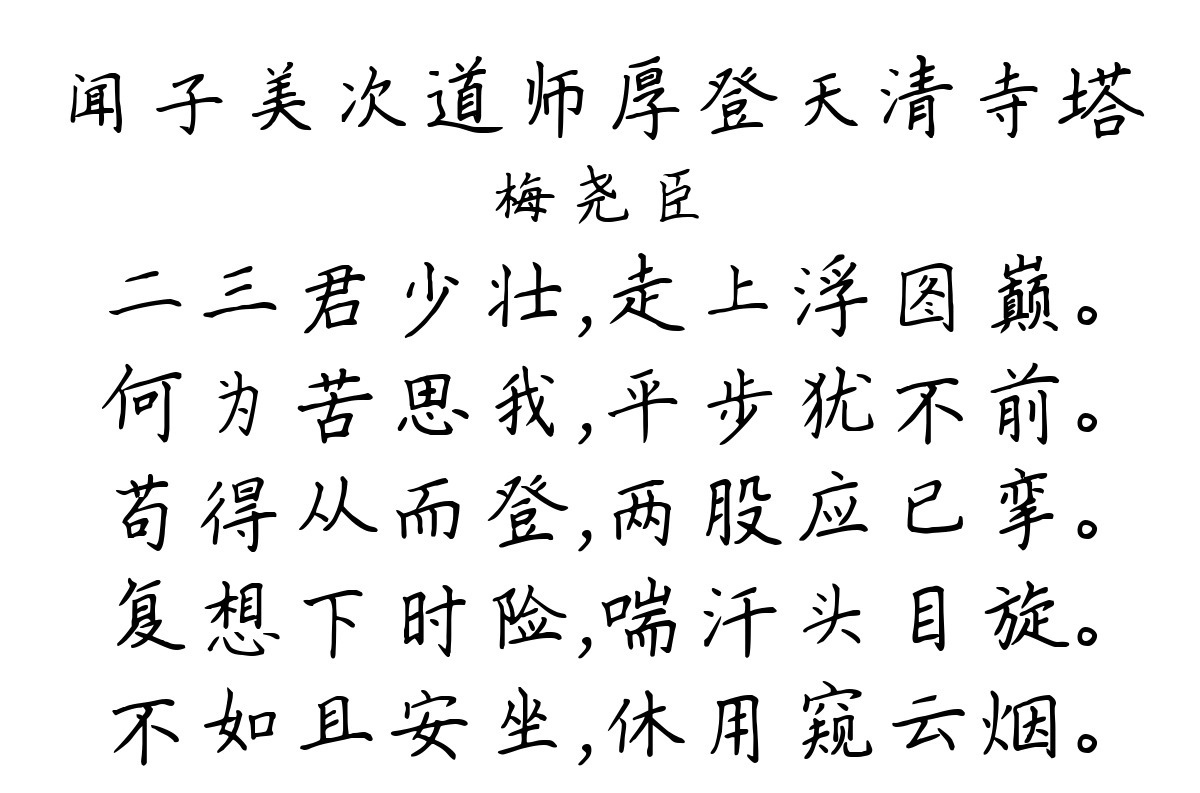 闻子美次道师厚登天清寺塔
梅尧臣
二三君少壮,走上浮图巅。
何为苦思我,平步犹不前。
苟得从而登,两股应已挛。
复想下时险,喘汗头目旋。
不如且安坐,休用窥云烟。